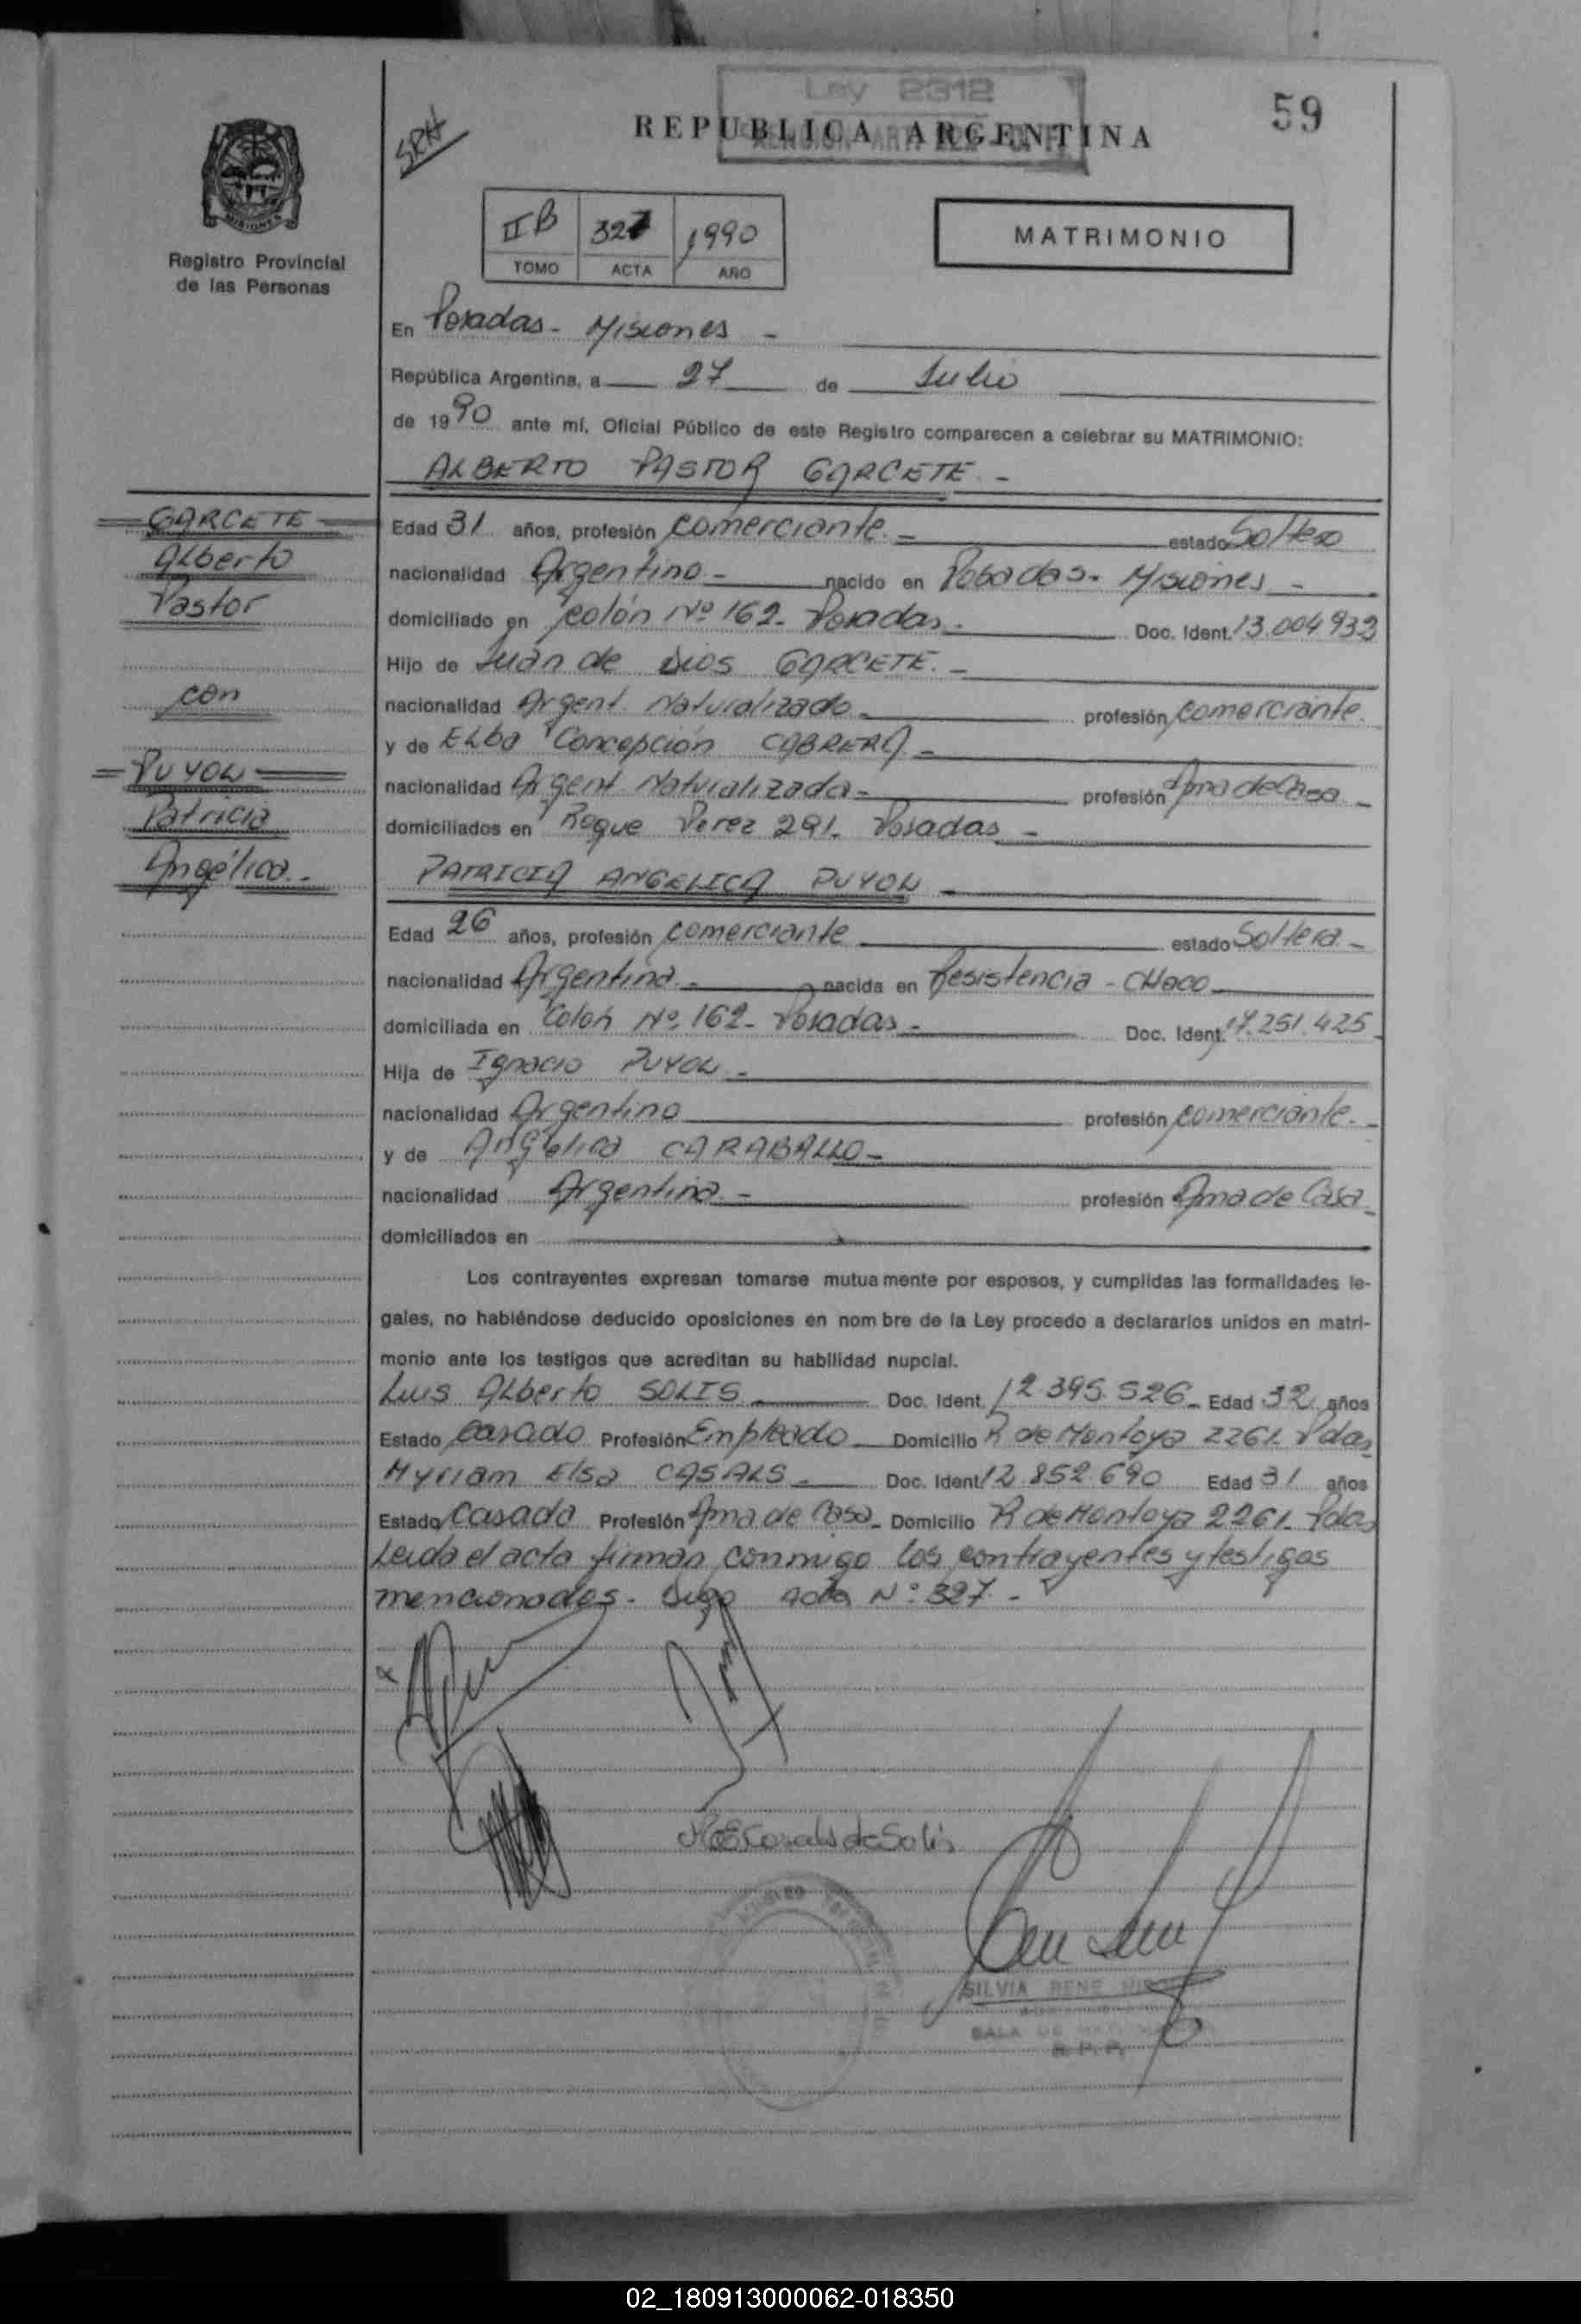 Ley 2312
REPUBLICA ARGENTINA
59
SRH
MISIONES
Registro Provincial
de las Personas
II B 327 1990
TOMO ACTA AÑO
MATRIMONIO
En Posadas - Misiones -
República Argentina, a 27 de Julio
de 1990 ante mí, Oficial Público de este Registro comparecen a celebrar su MATRIMONIO:
ALBERTO PASTOR GARCETE. -
GARCETE
Alberto
Pastor
con
PUYOL
Patricia
Angélica.-
Edad 31 años, profesión comerciante. - estado Soltero
nacionalidad Argentino - nacido en Posadas - Misiones -
domiciliado en Colón Nº 162 - Posadas - Doc. Ident. 13.004933
Hijo de Juan de Dios GARCETE. -
nacionalidad Argent. Naturalizado - profesión comerciante.
y de Elba Concepción CABRERA -
nacionalidad Argent. Naturalizada - profesión Ama de Casa -
domiciliados en Roque Perez 291 - Posadas -
PATRICIA ANGELICA PUYOL -
Edad 26 años, profesión comerciante estado Soltera -
nacionalidad Argentina. - nacida en Resistencia - CHaco
domiciliada en Colón Nº 162 - Posadas - Doc. Ident. 17.251.425
Hija de Ignacio PUYOL -
nacionalidad Argentino profesión comerciante. -
y de Angélica CARABALLO -
nacionalidad Argentina - profesión Ama de Casa -
domiciliados en
Los contrayentes expresan tomarse mutuamente por esposos, y cumplidas las formalidades le-
gales, no habiéndose deducido oposiciones en nombre de la Ley procedo a declararlos unidos en matri-
monio ante los testigos que acreditan su habilidad nupcial.
Luis Alberto SOLIS Doc. Ident. 12.395.526 - Edad 32 años
Estado Casado Profesión Empleado Domicilio R de Montoya 2261 - Pdas
Myriam Elsa CASALS - Doc. Ident 12.852.690 Edad 31 años
Estado Casada Profesión Ama de Casa - Domicilio R de Montoya 2261 - Pdas
Leida el acta firman conmigo los contrayentes y testigos
mencionados - Digo acta Nº: 327. -
M E Casals de Solis
SILVIA RENE
SALA DE
R. P. P.
02_180913000062-018350